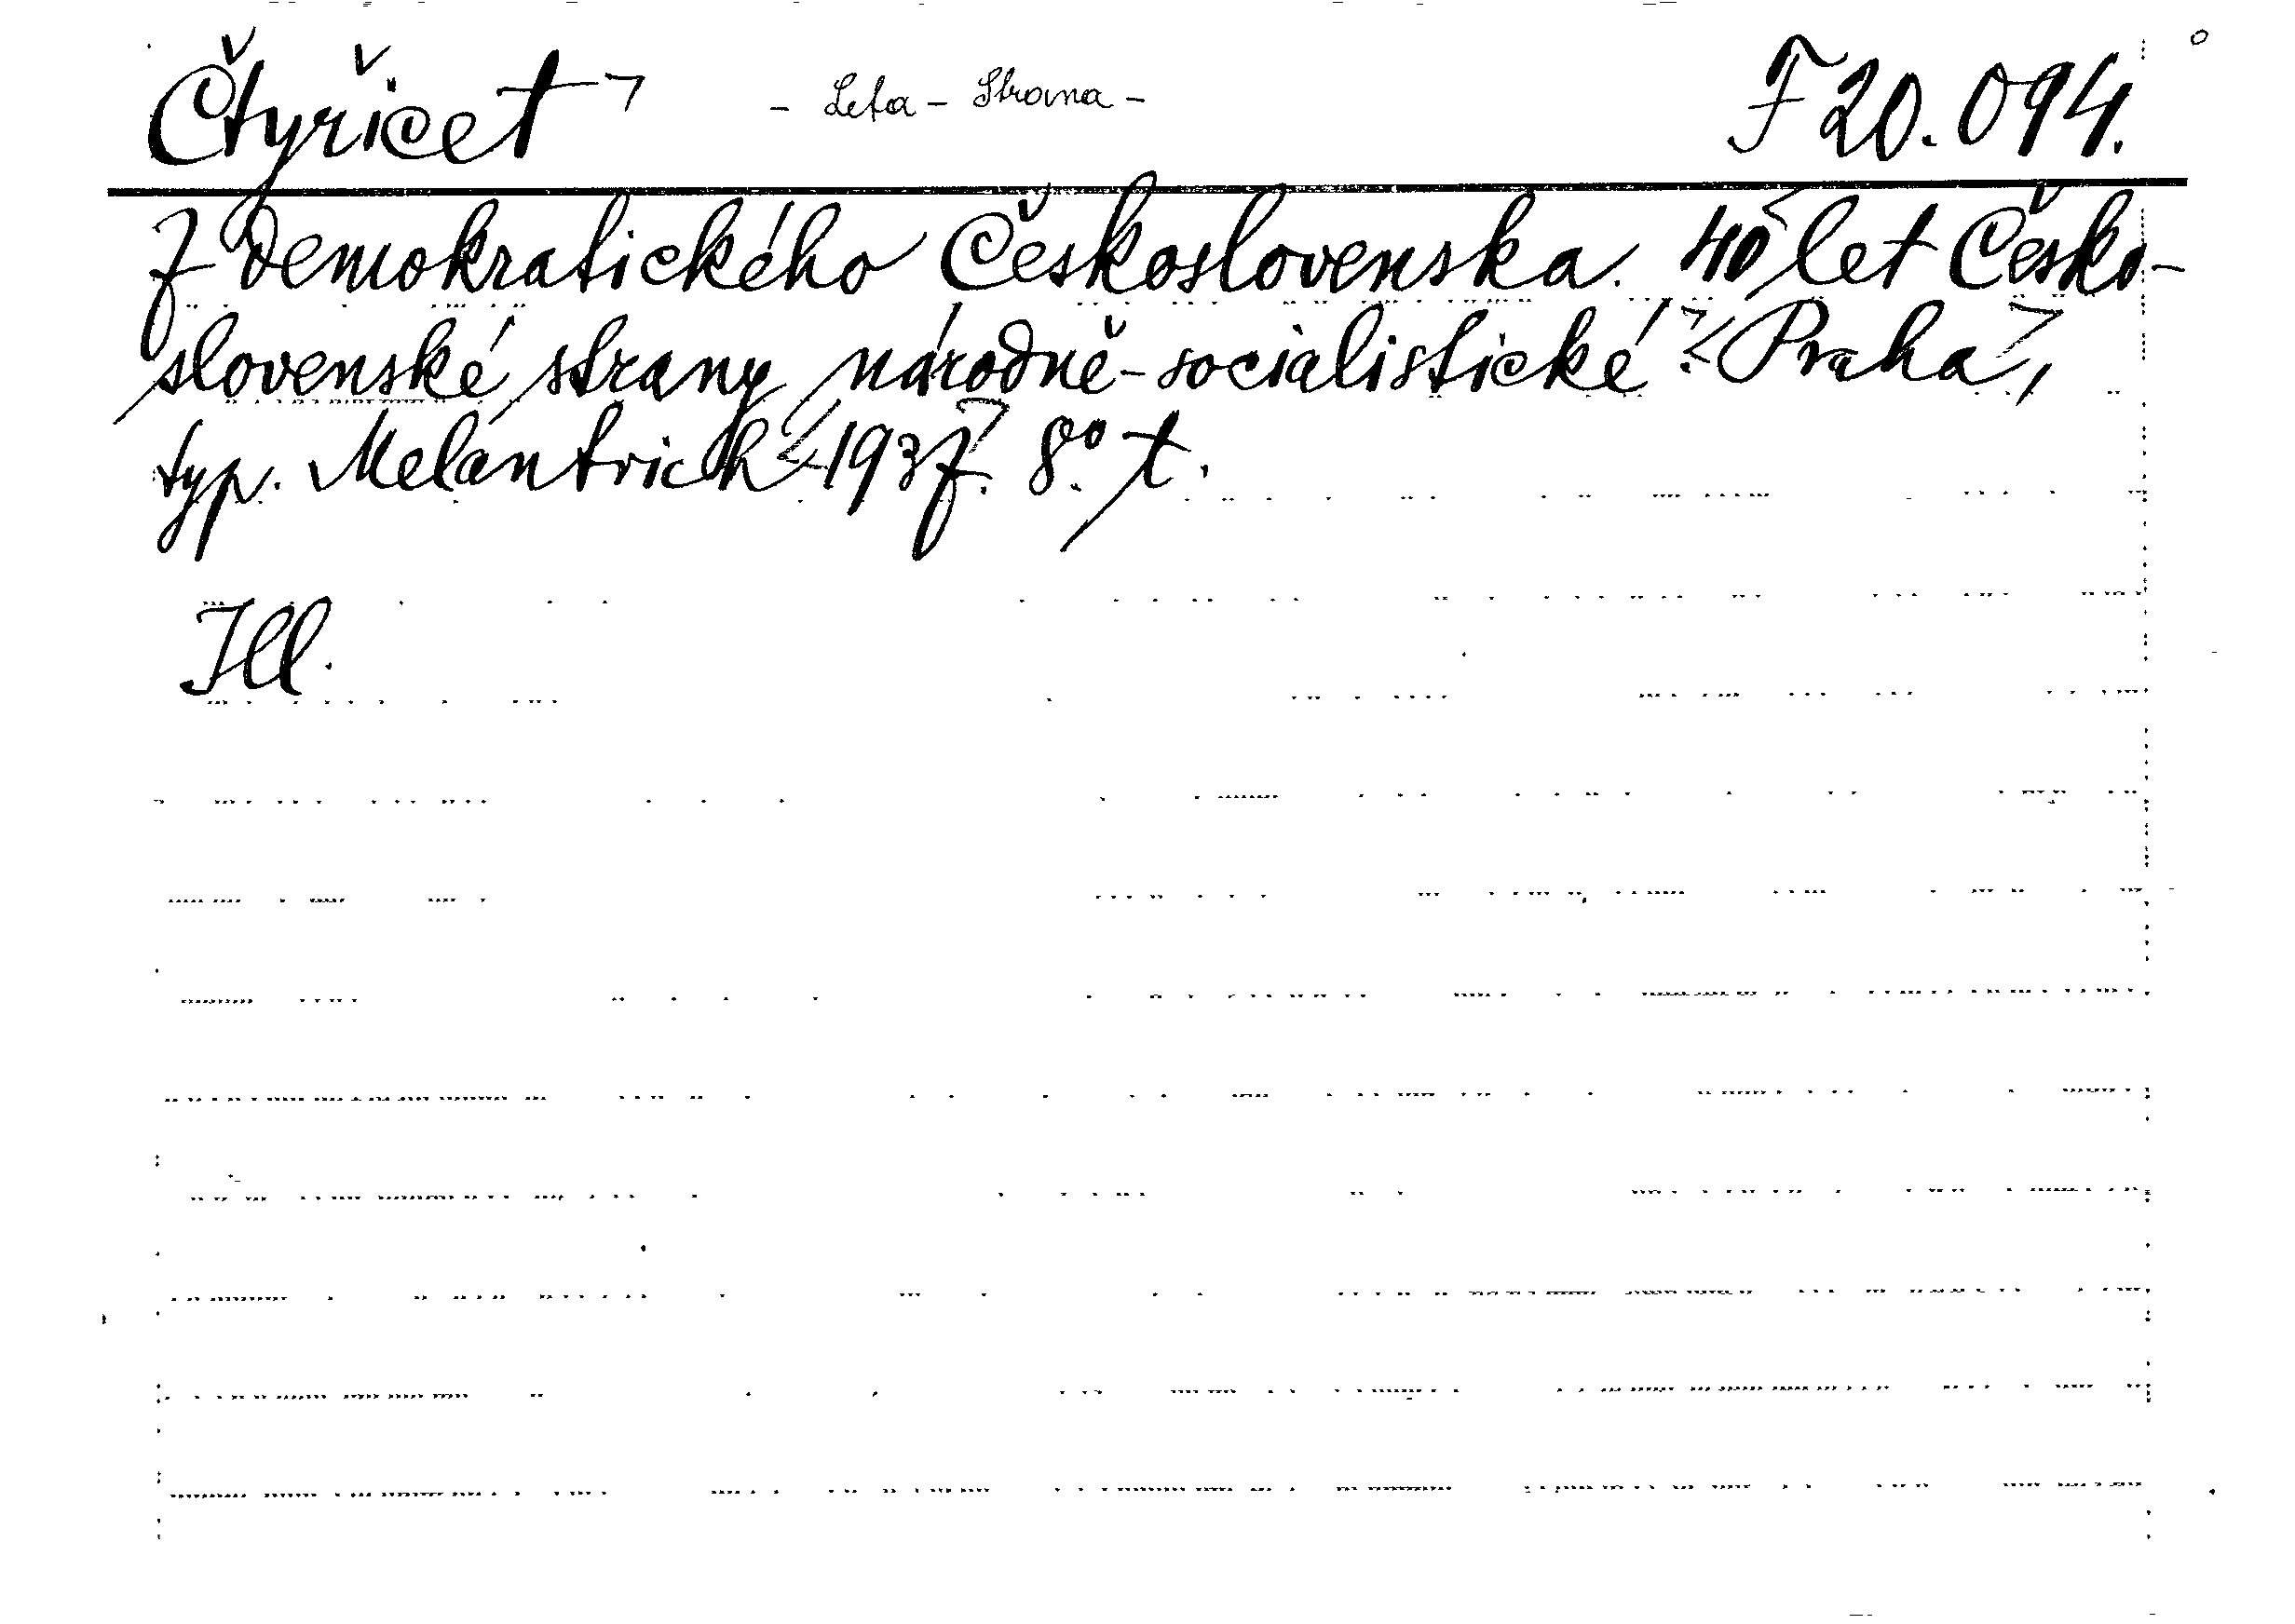 Čtyřicet - Leta - Strana - F 20.094.
Z demokratického Československa. <40 let Česko-
slovenské strany národně-socialistické>. <Praha>,
typ. Melantrich <1937>. 8° t.
Ill.